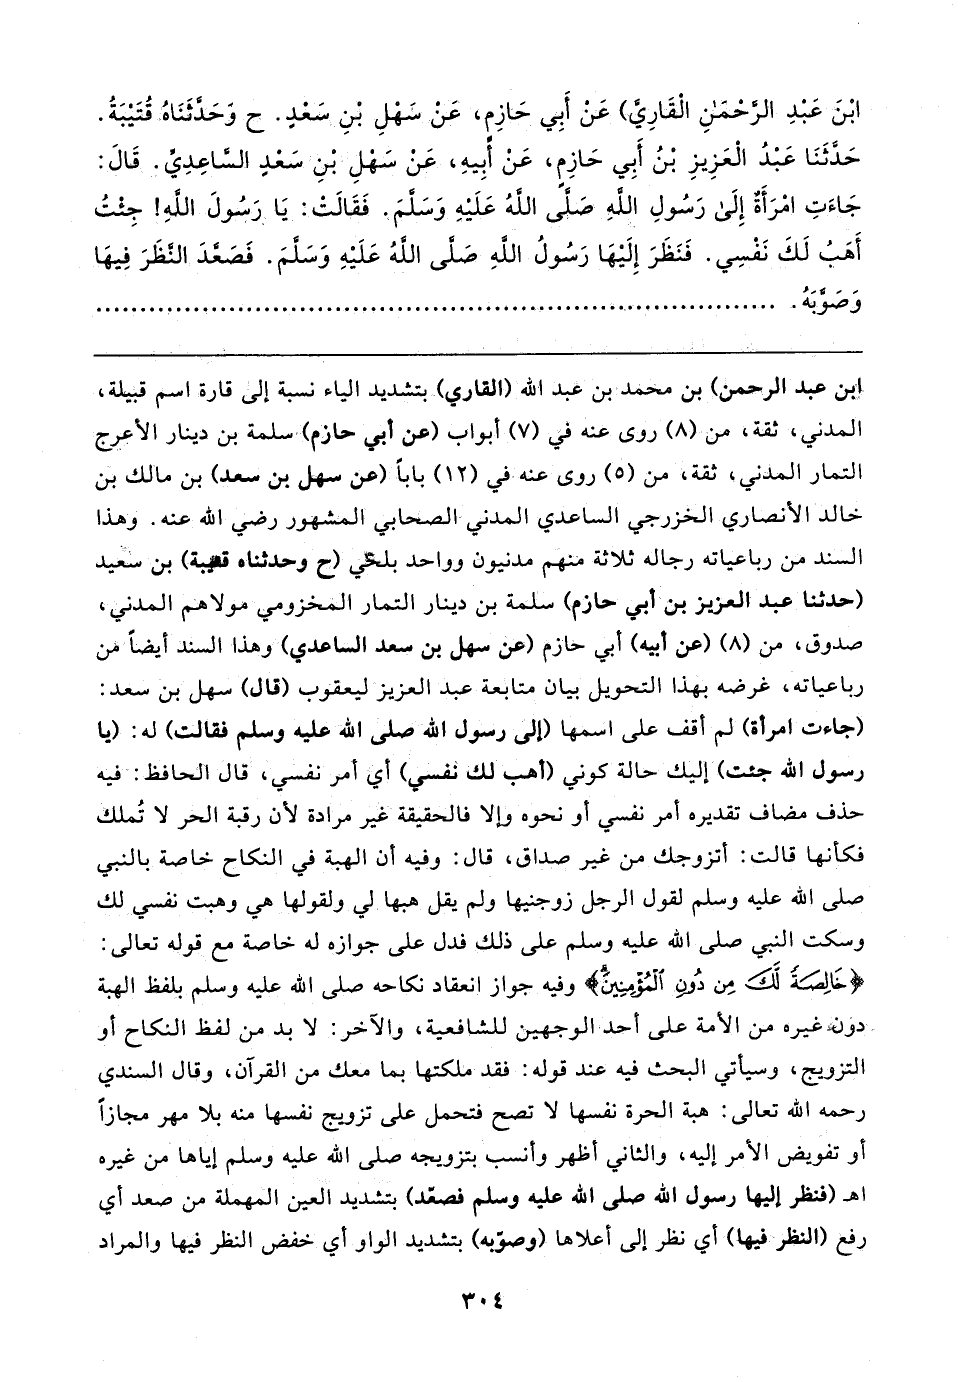 ابْنَ عَبْدِ الرَّحْمَٰنِ الْقَارِيَّ) عَنْ أَبِي حَازِمٍ، عَنْ سَهْلِ بْنِ سَعْدٍ. ح وَحَدَّثَنَاهُ قُتَيْبَةُ.
حَدَّثَنَا عَبْدُ الْعَزِيزِ بْنُ أَبِي حَازِمٍ، عَنْ أَبِيهِ، عَنْ سَهْلِ بْنِ سَعْدٍ السَّاعِدِيِّ. قَالَ:
جَاءَتِ امْرَأَةٌ إِلَىٰ رَسُولِ اللَّهِ صَلَّى اللَّهُ عَلَيْهِ وَسَلَّمَ. فَقَالَتْ: يَا رَسُولَ اللَّهِ! جِئْتُ
أَهَبُ لَكَ نَفْسِي. فَنَظَرَ إِلَيْهَا رَسُولُ اللَّهِ صَلَّى اللَّهُ عَلَيْهِ وَسَلَّمَ. فَصَعَّدَ النَّظَرَ فِيهَا
وَصَوَّبَهُ. ................................................................................
ابن عبد الرحمن) بن محمد بن عبد الله (القاري) بتشديد الياء نسبة إلى قارة اسم قبيلة،
المدني، ثقة، من (٨) روى عنه في (٧) أبواب (عن أبي حازم) سلمة بن دينار الأعرج
التمار المدني، ثقة، من (٥) روى عنه في (١٢) باباً (عن سهل بن سعد) بن مالك بن
خالد الأنصاري الخزرجي الساعدي المدني الصحابي المشهور رضي الله عنه. وهذا
السند من رباعياته رجاله ثلاثة منهم مدنيون وواحد بلخي (ح وحدثناه قتيبة) بن سعيد
(حدثنا عبد العزيز بن أبي حازم) سلمة بن دينار التمار المخزومي مولاهم المدني،
صدوق، من (٨) (عن أبيه) أبي حازم (عن سهل بن سعد الساعدي) وهذا السند أيضاً من
رباعياته، غرضه بهذا التحويل بيان متابعة عبد العزيز ليعقوب (قال) سهل بن سعد:
(جاءت امرأة) لم أقف على اسمها (إلى رسول الله صلى الله عليه وسلم فقالت) له: (يا
رسول الله جئت) إليك حالة كوني (أهب لك نفسي) أي أمر نفسي، قال الحافظ: فيه
حذف مضاف تقديره أمر نفسي أو نحوه وإلا فالحقيقة غير مرادة لأن رقبة الحر لا تُملك
فكأنها قالت: أتزوجك من غير صداق، قال: وفيه أن الهبة في النكاح خاصة بالنبي
صلى الله عليه وسلم لقول الرجل زوجنيها ولم يقل هبها لي ولقولها هي وهبت نفسي لك
وسكت النبي صلى الله عليه وسلم على ذلك فدل على جوازه له خاصة مع قوله تعالى:
﴿خَالِصَةً لَّكَ مِن دُونِ ٱلْمُؤْمِنِينَۗ﴾ وفيه جواز انعقاد نكاحه صلى الله عليه وسلم بلفظ الهبة
دون غيره من الأمة على أحد الوجهين للشافعية، والآخر: لا بد من لفظ النكاح أو
التزويج، وسيأتي البحث فيه عند قوله: فقد ملكتها بما معك من القرآن، وقال السندي
رحمه الله تعالى: هبة الحرة نفسها لا تصح فتحمل على تزويج نفسها منه بلا مهر مجازاً
أو تفويض الأمر إليه، والثاني أظهر وأنسب بتزويجه صلى الله عليه وسلم إياها من غيره
اهـ (فنظر إليها رسول الله صلى الله عليه وسلم فصعّد) بتشديد العين المهملة من صعد أي
رفع (النظر فيها) أي نظر إلى أعلاها (وصوّبه) بتشديد الواو أي خفض النظر فيها والمراد
٣٠٤